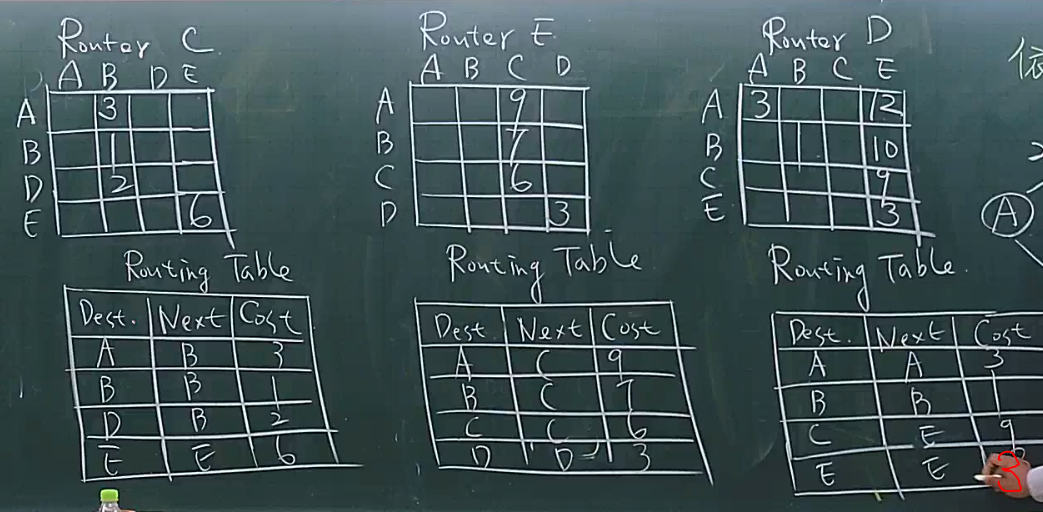 Router C
A B D E
A 3
B 1
D 2
E 6
Routing Table
Dest. Next Cost
A B 3
B B 1
D B 2
E E 6
Router E
A B C D
A 9
B 7
C 6
D 3
Routing Table
Dest. Next Cost
A C 9
B C 7
C C 6
D D 3
Router D
A B C E
A 3 12
B 1 10
C 9
E 3
Routing Table.
Dest. Next Cost
A A 3
B B 1
C E 9
E E 3
依
A